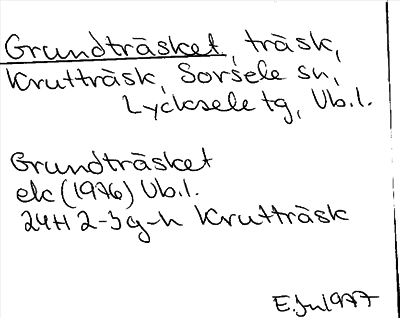 Grundträsket, träsk,
Krutträsk, Sorsele sn,
Lycksele tg, Vb.l.
Grundträsket
ek (1976) Vb.l.
24H 2-3 g-h Krutträsk
1977